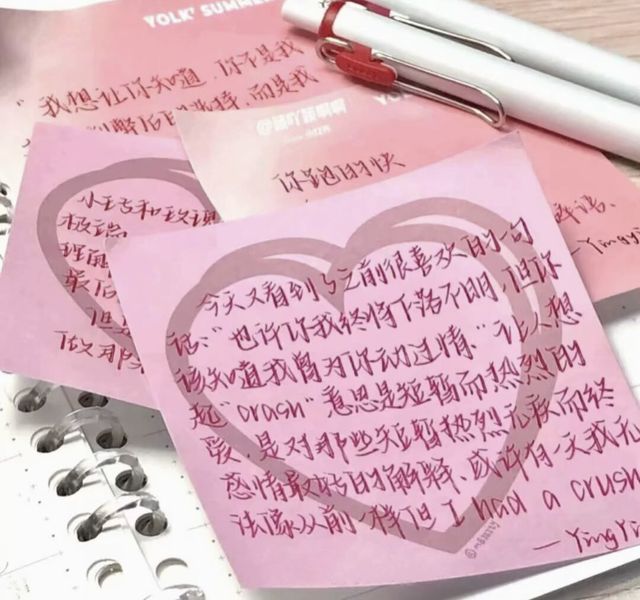 YOLK' SUMME
"我想让你知道,你不是我
,而是我
你跑的快
—Yingyi
小王子和玫瑰
极端
但
做那
今天又看到了之前很喜欢的一句
话:"也许你我终将下落不明,但你
该知道我曾为你动过情."让人想
起"crush"意思是短暂而热烈的
爱.是对那些短暂热烈无获而终
感情最好的解释.或许有一天我无
法像从前一样但 I had a crush
—YingYi